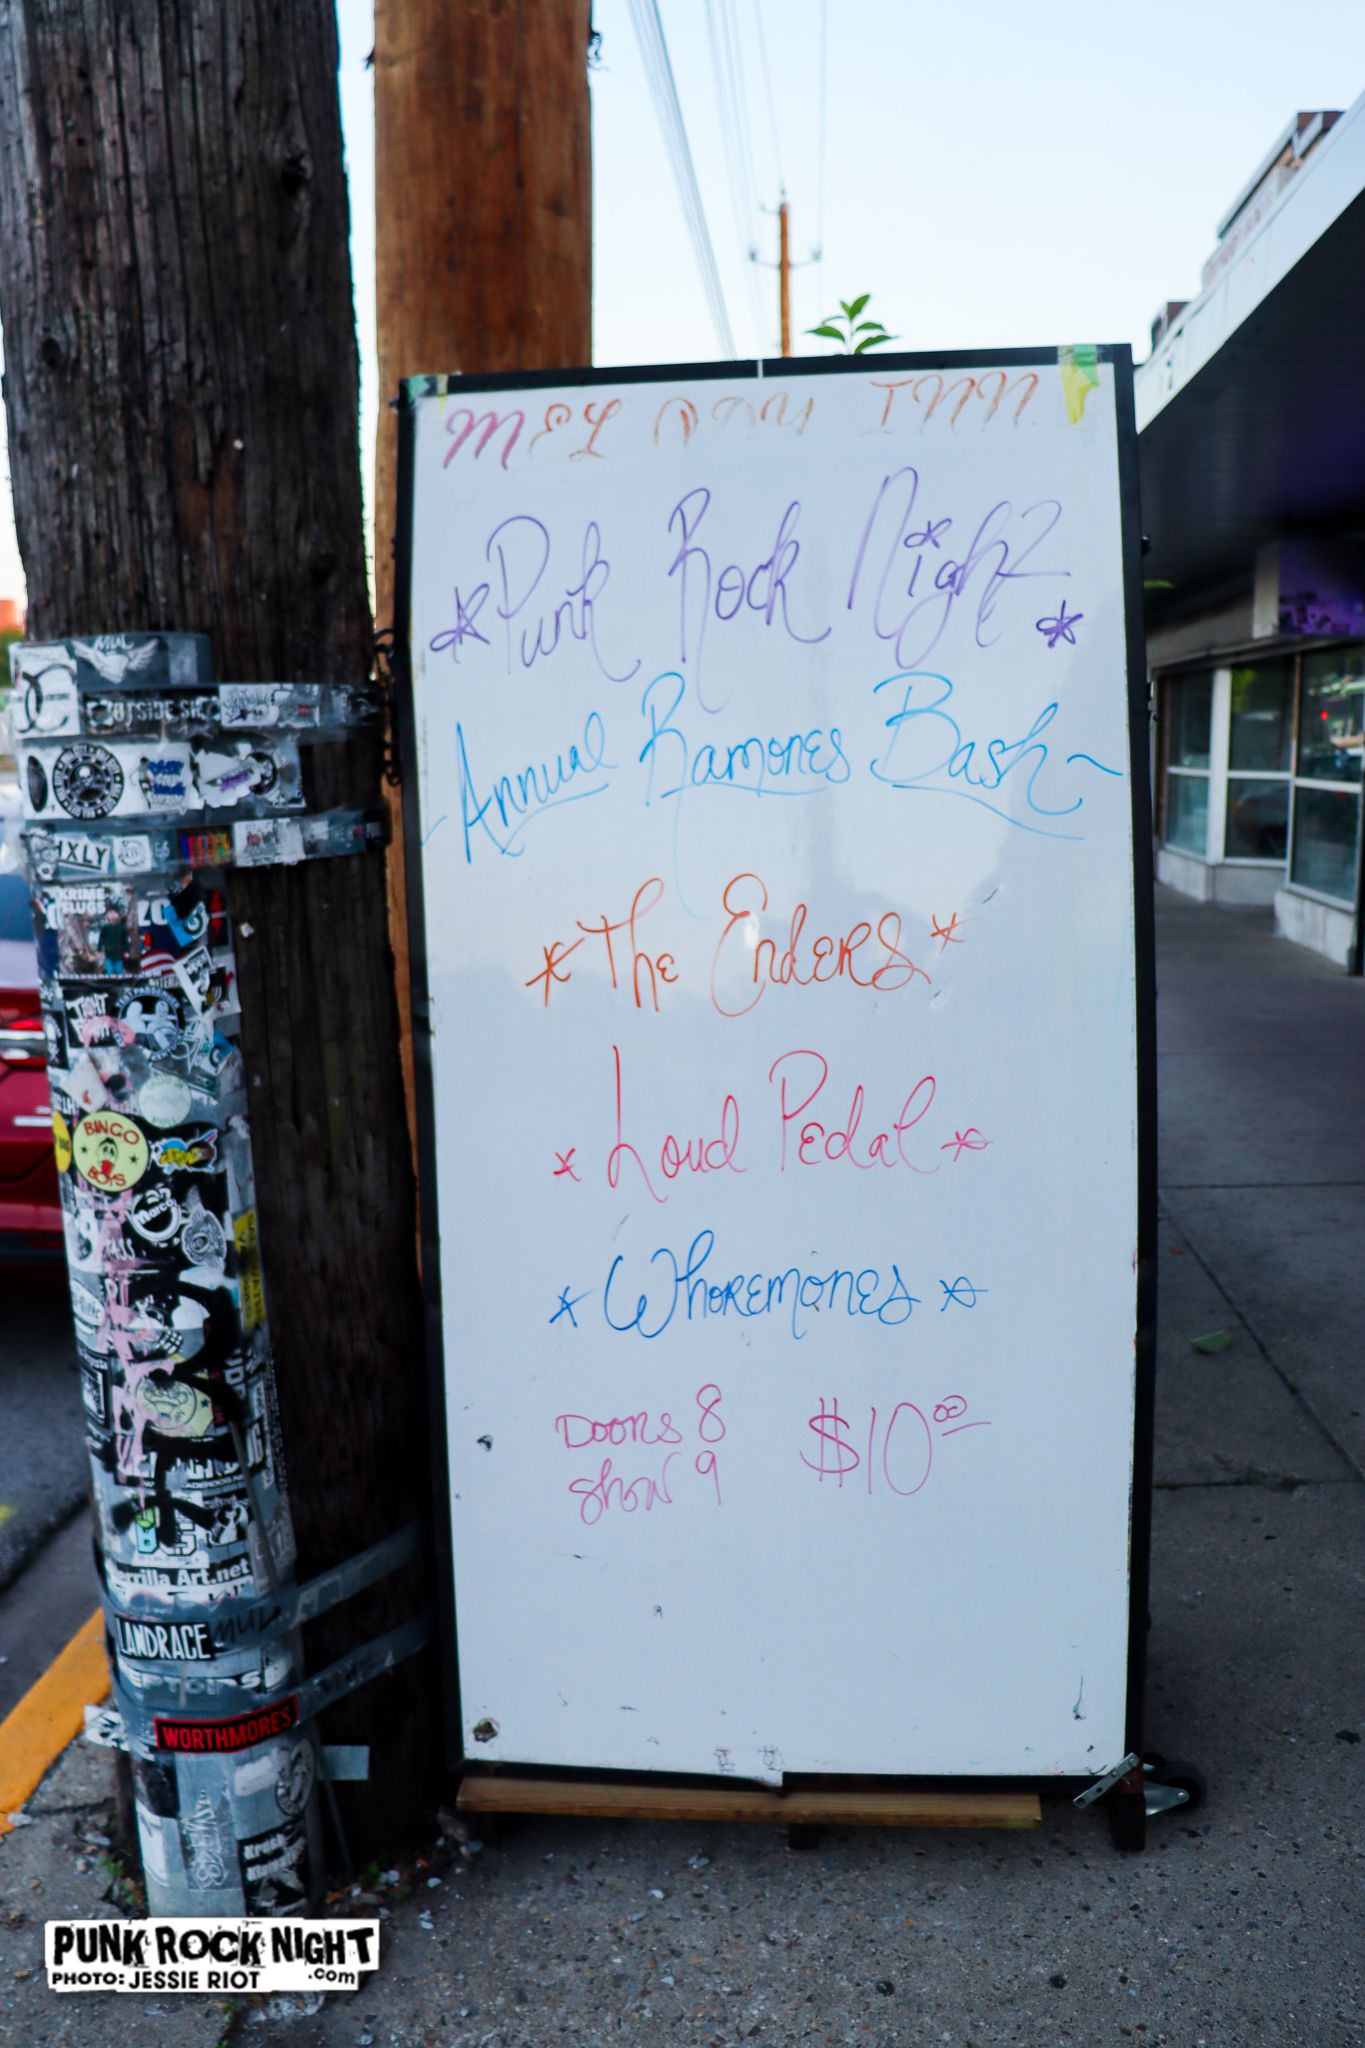 MELODY INN
*Punk Rock Night*
Annual Ramones Bash~
*The Enders*
*Loud Pedal*
*Whoremones*
Doors 8 $10.00
Show 9
OUTSIDE
HXLY
KRIME
SLUGS
BINGO
BOYS
Marco
Art.net
LANDRACE
WORTHMORES
PUNK ROCK NIGHT
.com
PHOTO: JESSIE RIOT